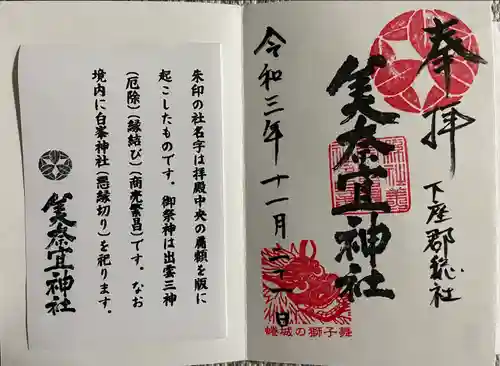 奉拝
下座郡惣社
美奈宜神社
令和三年十一月二十一日
蜷城の獅子舞
朱印の社名字は拝殿中央の扁額を版に
起こしたものです。御祭神は出雲三神
(厄除)(縁結び)(商売繁昌)です。なお
境内に白峯神社(悪縁切り)を祀ります。
美奈宜神社